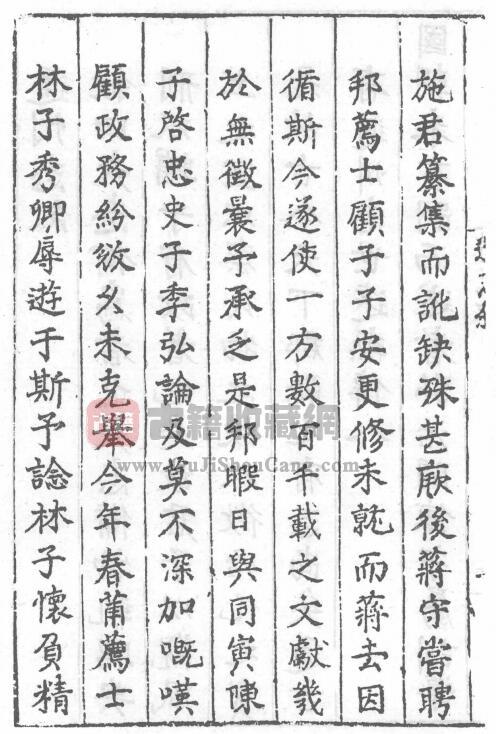 施君纂集而訛缺殊甚厥後蔣守嘗聘
邦薦士顧子子安更修未就而蔣去因
循斯今遂使一方數百千載之文獻幾
於無徵曩予承乏是邦暇日與同寅陳
子啓忠史子季弘論及莫不深加嘅嘆
顧政務紛紜久未克舉今年春莆薦士
林子秀卿辱遊于斯予諗林子懷負精
古籍收藏網
www.GuJiShouCang.com